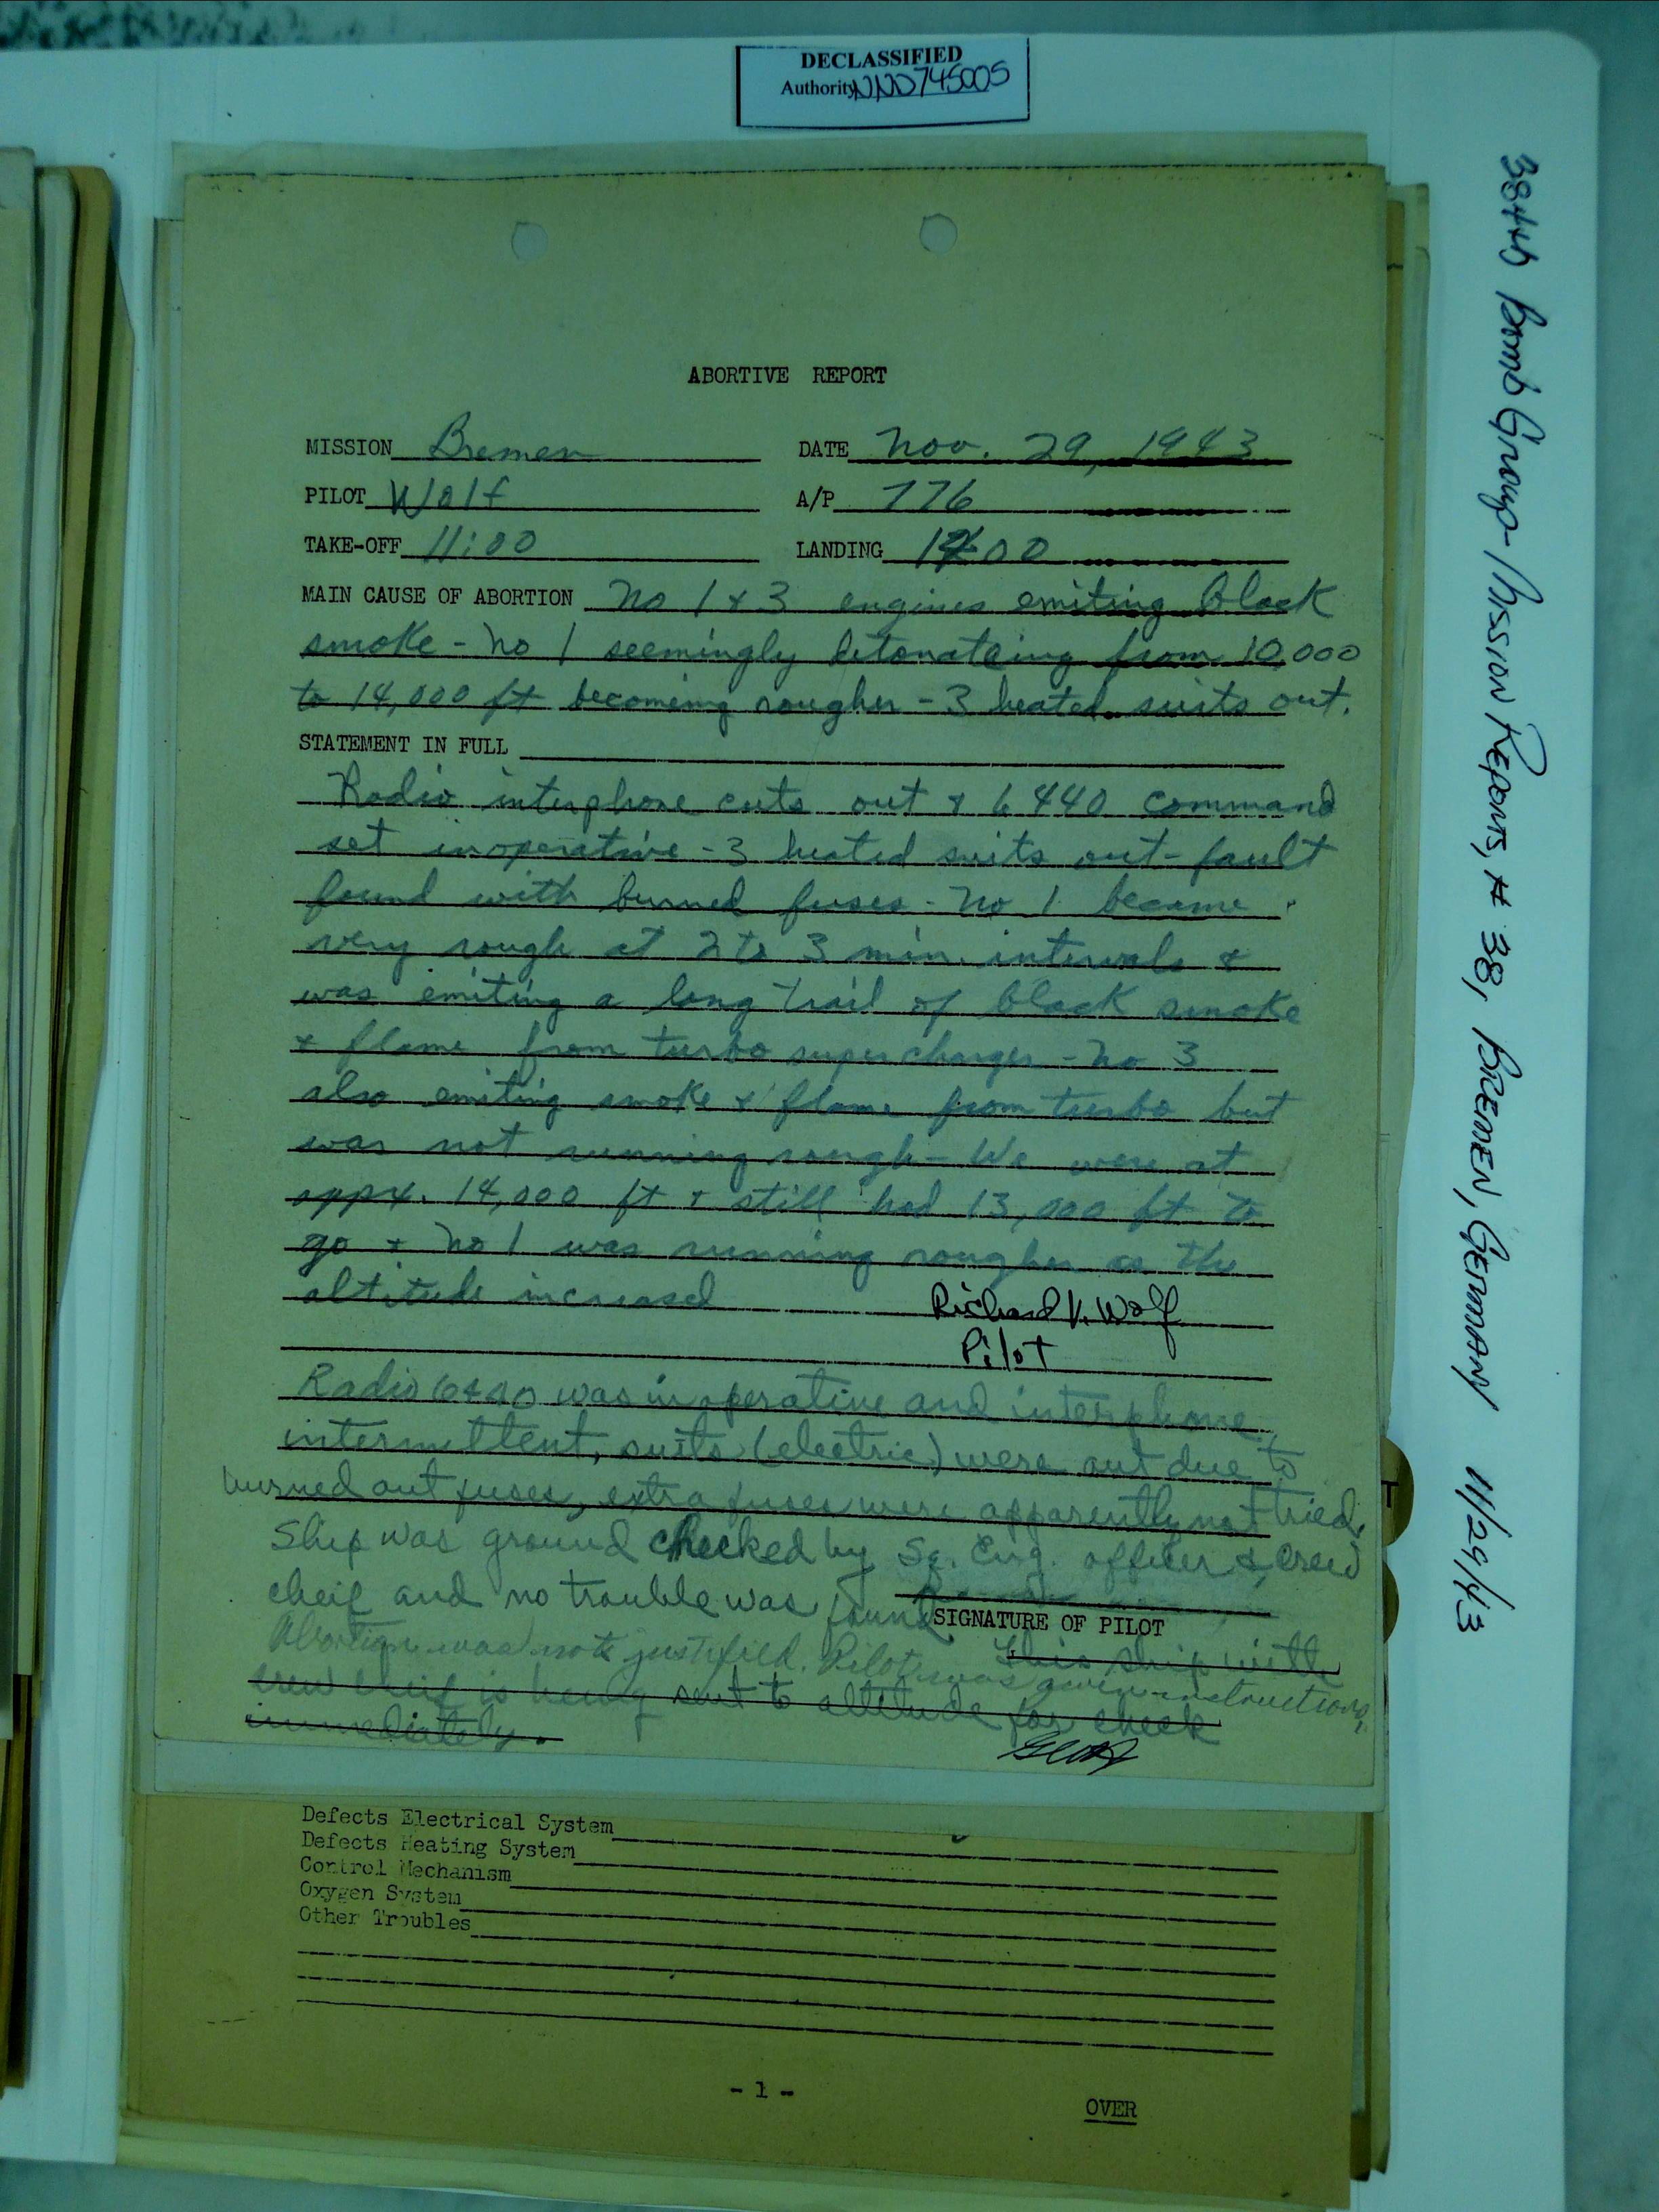 DECLASSIFIED
Authority NND 745005
384th Bomb Group - Mission Reports, # 38, BREMEN, GERMANY 11/29/43
ABORTIVE REPORT
MISSION Bremen DATE Nov. 29, 1943
PILOT Wolf A/P 776
TAKE-OFF 11:00 LANDING 00
MAIN CAUSE OF ABORTION No 1 & 3 engines emiting black
smoke - No 1 seemingly detonateing from 10,000
to 14,000 ft becoming rougher - 3 heated suits out.
STATEMENT IN FULL
Radio interphone cuts out & 6440 command
set inoperative - 3 heated suits out - fault
found with burned fuses - No 1 became
very rough at 2 to 3 min. intervals &
was emiting a long trail of black smoke
& flame from turbo supercharger - No 3
also emiting smoke & flame from turbo but
was not running rough - We were at
appx. 14,000 ft & still had 13,000 ft to
go & No 1 was running rougher as the
altitude increased Richard V. Wolf
Pilot
Radio 6440 was inoperative and interphone
intermittent, suits (electric) were out due to
burned out fuses, extra fuses were apparently not tried.
Ship was ground checked by Sq. Eng. officer & crew
cheif and no trouble was found
SIGNATURE OF PILOT
Abortion was not justified. Pilot was given instructions.
This ship with
crew cheif is being sent to altitude for check
immediately.
Defects Electrical System
Defects Heating System
Control Mechanism
Oxygen System
Other Troubles
- 1 -
OVER